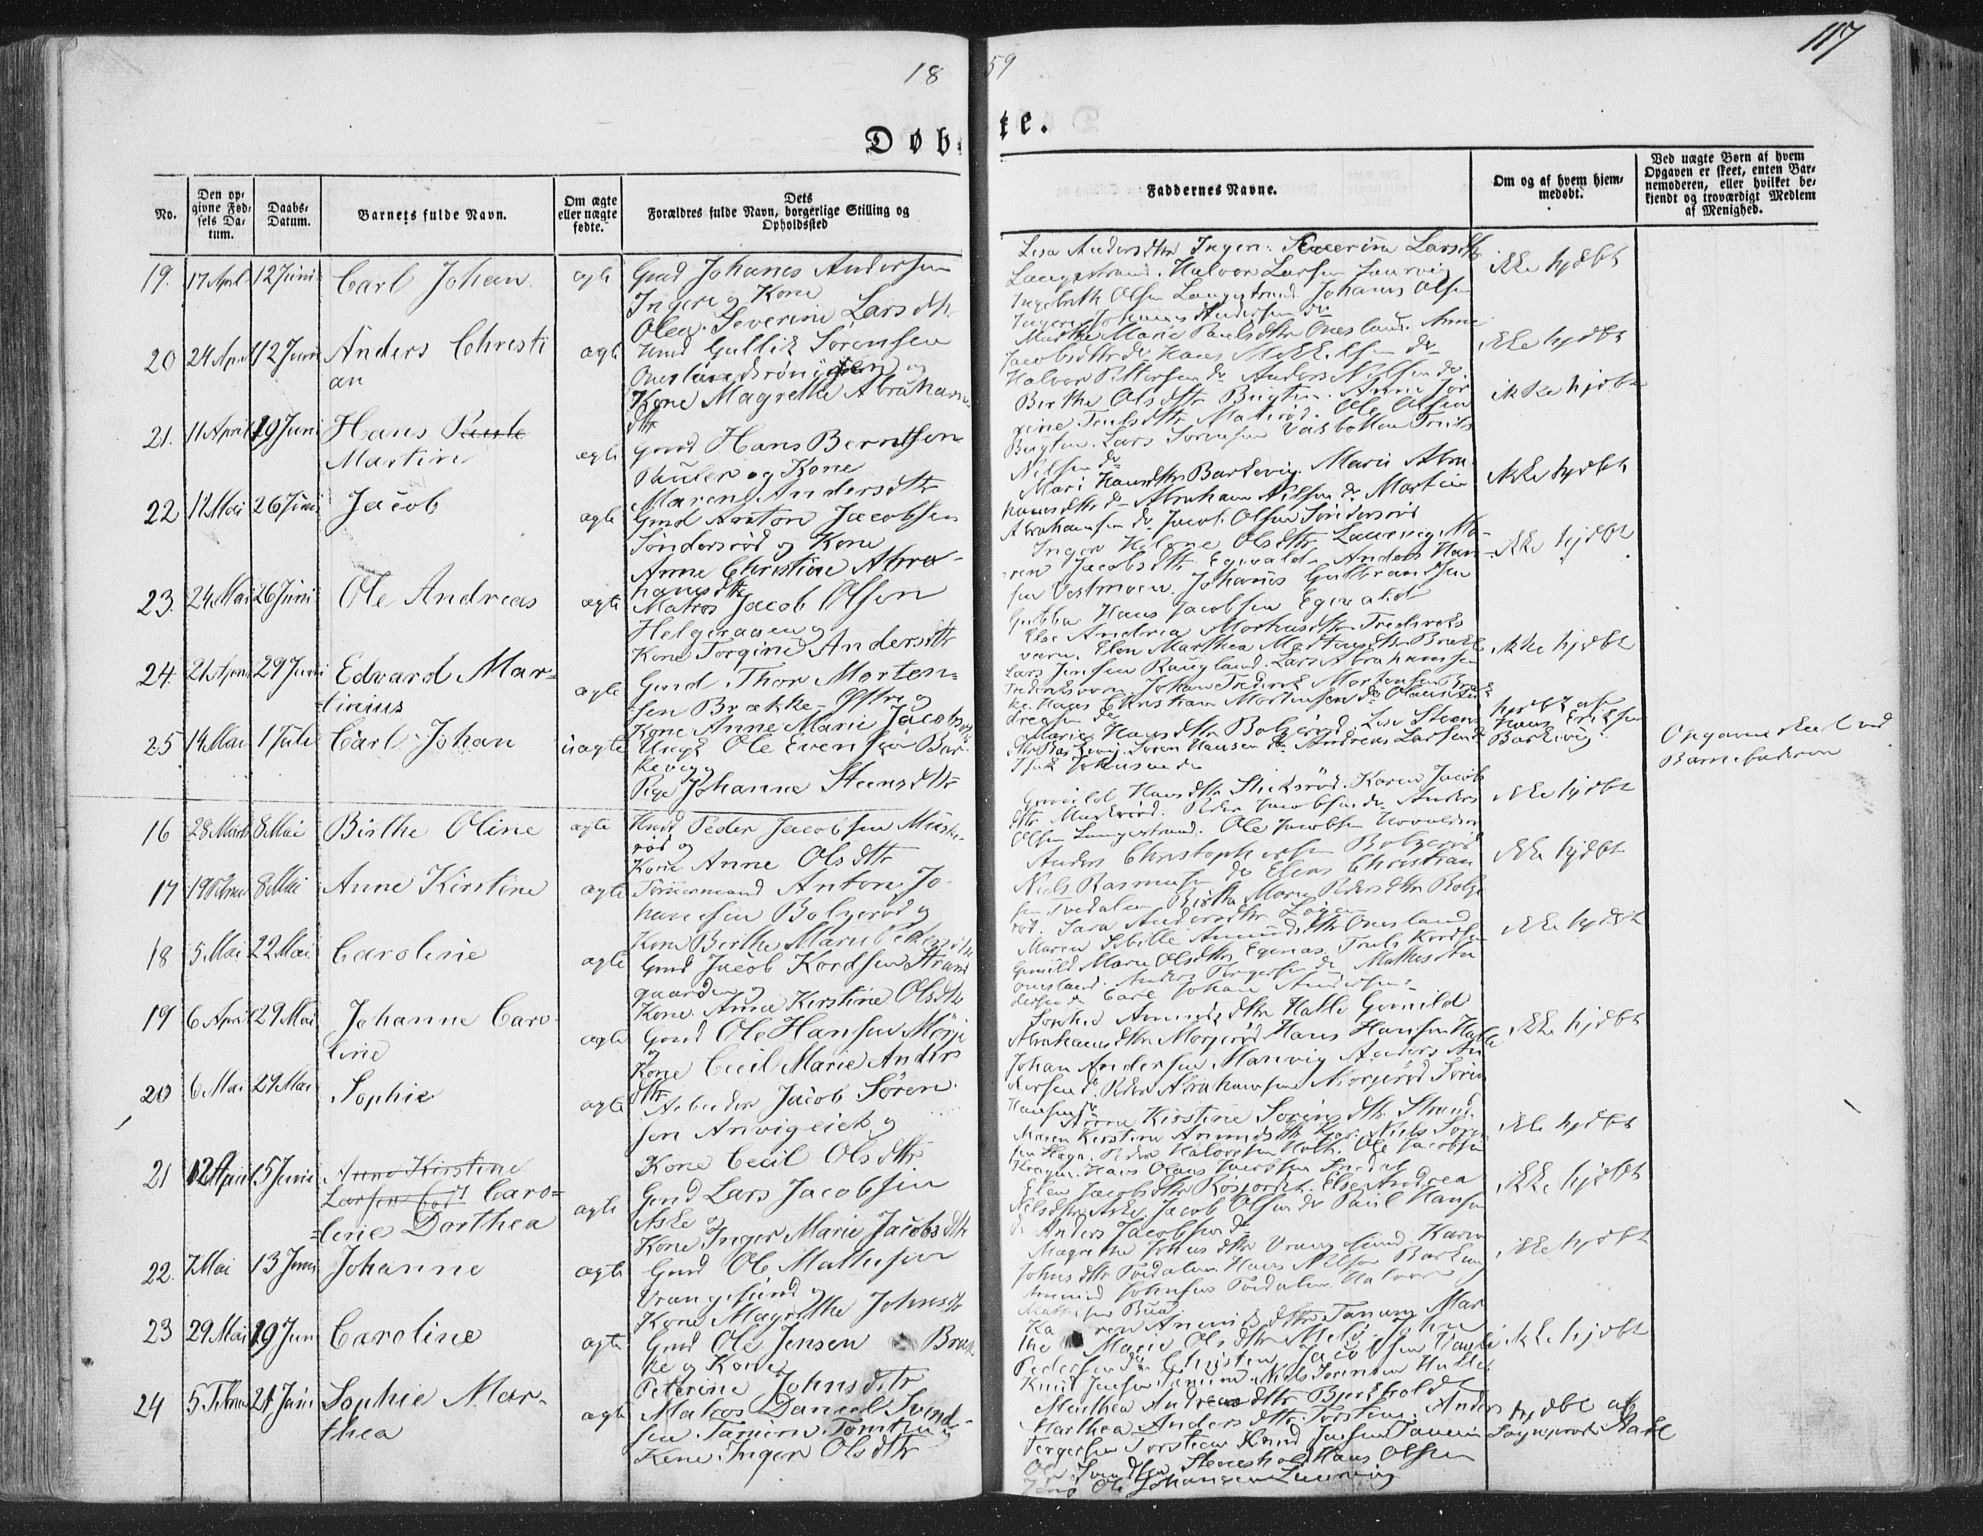 18 59
117
Døbte.
No.
Den opgivne Fødsels Datum.
Daabs-Datum.
Barnets fulde Navn.
Om ægte eller uægte fødte.
Dets Forældres fulde Navn, borgerlige Stilling og Opholdssted
Faddernes Navne.
Om og af hvem hjemmedøbt.
Ved uægte Børn af hvem Opgaven er skeet, enten Barnemoderen, eller hvilket bekjendt og troværdigt Medlem af Menighed.
19. 17 April 12 Juni Carl Johan ægte Gmd Johanes Andersen
Ingere og Kone
Olea Severine Larsdtr
Lisa Andersdtr Ingere Severine Larsdtr
Langestrand. Halvor Larsen Laurvig
Ingebreth Olsen Langestrand Johanes Olsen
Ingere Johanes Andersen do
ikke hjdbt
20 24 April 12 Juni Anders Christi
an
ægte Hmd Gullik Sørensen
Oneslandsrøningen og
Kone Magrethe Abrahams
dtr
Marthe Marie Paulsdtr Onesland. Anne
Jacobsdtr do Hans Mikkelsen do
Halvor Pettersen do Anders Nilsen do
ikke hjdbt
21. 11 April 19 Juni Hans Paule
Martin
ægte Gmd Hans Berntsen
Pauler og Kone
Maren Andersdtr
Birthe Olsdtr Bugten. Anne Jør
gine Trulsdtr Ole Olsen
Bugten. Lars Sørensen Vasbotten Truls
Nilsen do
ikke hjdbt
22 12 Mai 26 Juni Jacob ægte Gmd Anton Jacobsen
Søndersrød og Kone
Anne Christine Abra-
hamsdtr
Mari Hansdtr Barkevig. Maria Abra
hamsdtr do Abraham Nilsen do Martin
Abrahamsen do Jacob Olsen Søndersrød
ikke hjdbt
23. 24 Mai 26 Juni Ole Andreas ægte Matros Jacob Olsen
Helgeraaen og
Kone Torgine Andersdtr
Inger Helene Olsdtr Laurvig Ma-
ren Jacobsdtr Egevald. Anders Han
sen Vestmoen. Johanes Gulbrandsen
Gubba Hans Jacobsen Egevald
ikke hjdbt
24. 21 April 29 Juni Edvard Mar-
tinius
ægte Gmd. Thor Morten-
sen Brække Østre og
Kone Anne Marie Jacobsdtr
Else Andrea Mortensdtr Frederiks
værn. Elen Marthea Mortensdtr Brække
Lars Jensen Raugland. Lars Abrahamsen
Frederiksværn. Johan Frederik Mortensen Bræk
ke. Hans Christian Mortensen do Olaus An
dreasen do
ikke hjdbt
25 14 Mai 1 Juli Carl Johan uægte Ungk Ole Evensen Bar-
kevig
Pige Johanne Steensdtr
Marie Hansdtr Bolgerød. Lise Steens
dtr Barkevig. Søren Hansen do Andreas Larsen do
Isak Johansen do
hjdbt af
Hans Eriksen
Barkevig.
Opgaven skeet ved
Barnefaderen
16 28 Marts 8 Mai Birthe Oline ægte Hmd Peder Jacobsen Muske
rød og
Kone Anne Olsdtr
Gunild Hansdtr Sticksrød. Karen Jacobs
dtr Muskerød. Peder Jacobsen do Anders
Olsen Langestrand. Ole Jacobsen
ikke hjdbt
17 19 8 Mai Anne Kirstine ægte Tømmermand Anton Jo-
hansen Bolgerød og
Kone Birthe Marie Pedersdtr
Anders Christophersen Bolgerød
Niels Rasmusen do Elias Christian
sen Tvedalen Birthe Marie Pedersdtr Bolge
rød. Sara Andersdtr
ikke hjdbt
18 5 Mai 22 Mai Caroline ægte Gmd Jacob Kordsen Strand
gaarden og
Kone Anne Kirstine Olsdtr
Maren Sibille Amundsdtr Onesland
Gunild Marie Olsdtr Egenæs. Truls Kordsen
Onesland. Anders Torgersen do Mathias An
dersen do Carl Johan Andersen
ikke hjdbt
19 6 April 29 Mai Johanne Caro-
line
ægte Gmd Ole Hansen Mørje
og
Kone Cecil Marie Anders
dtr
Sophie Amundsdtr Halle Gunild
Abrahamsdtr Morjerød Hans Hansen Halle
Johan Andersen Manvig Anders An
dersen do Peder Abrahamsen Morjerød Søren
Hansen do
ikke hjdbt
20 6 Mai 29 Mai Sophie ægte Arbeider Jacob Søren
sen Anvigeiet og
Kone Cecil Olsdtr
Anne Kirstine Sørensdtr Strand.
Maren Kirstine Amundsdtr Niels Søren
sen Peder Halvorsen Holt. Ole Jacobsen
Kragen. Hans Olaus Jacobsen
ikke hjdbt
21 12 April 5 Juni Anne Kirstine
Larsen Caro-
line Dorthea
ægte Gmd Lars Jacobsen
Aske og
Kone Inger Marie Jacobsdtr
Elen Jacobsdtr Else Andrea
Nilsdtr Aske. Jacob Olsen do Paul Hansen
do Anders Jacobsen do
ikke hjdbt
22. 7 Mai 13 Juni Johanne ægte Gmd Ole Mathisen
Vrangesund og
Kone Magrethe Johnsdtr
Magrethe Johnsdtr Vrangesund. Karen
Johnsdtr Tvedalen. Hans Nilsen Barkevig
Amund Johnsen Tvedalen. Halvor
Mathisen Bua.
ikke hjdbt
23 29 Mai 19 Juni Caroline ægte Gmd Ole Jensen Bræk
ke og Kone
Peterine Johnsdtr
Karen Amundsdtr Tanum Mar
the Marie Olsdtr Melø. John
Pedersen do Christen Jacobsen
Knud Jensen Tanum Niels Sørensen Halle
ikke hjdbt
24 5 Februar 21 Juni Sophie Mar-
thea
ægte Matros Daniel Svend-
sen Tanum Tomten og
Kone Inger Olsdtr
Mathea Andreasdtr Bjerkholdt
Marthea Andersdtr Torstein. Anders
Torgersen Torstein Knud Jensen Tanum
Ole Svendsen Steensholt Hans Olsen
Ole Johansen Laurvig
hjdbt af
Sogneprest Aall